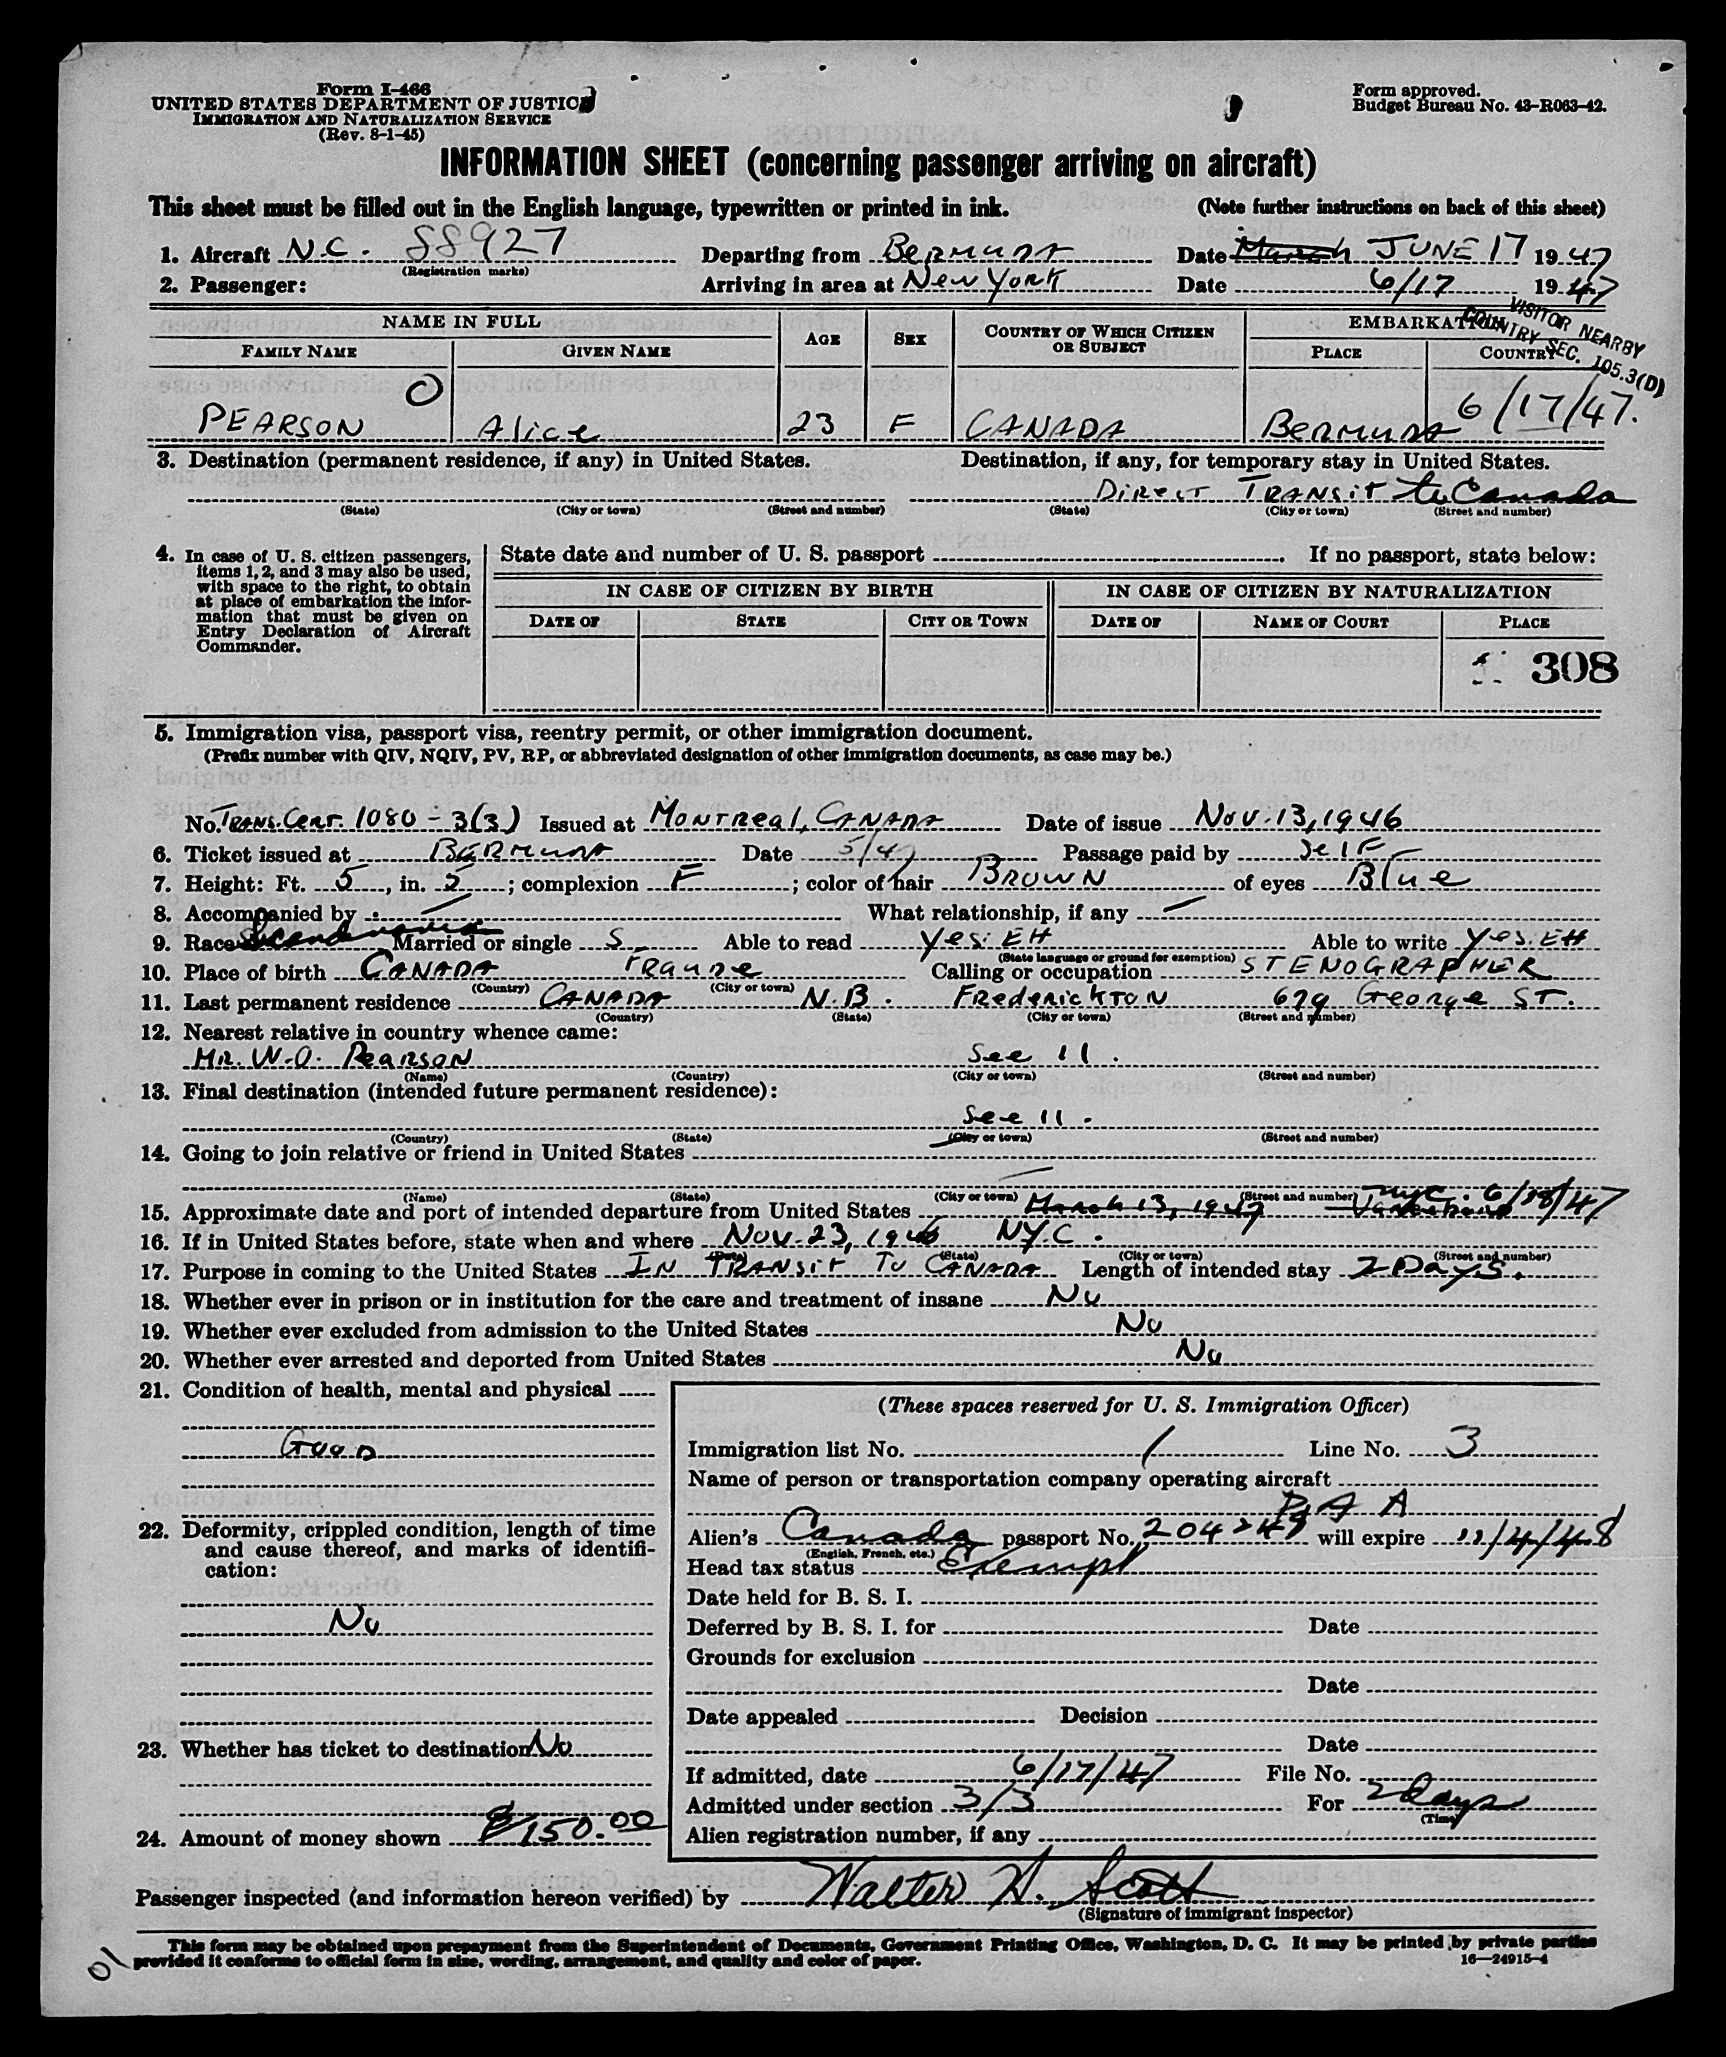 Form I-466
UNITED STATES DEPARTMENT OF JUSTICE
IMMIGRATION AND NATURALIZATION SERVICE
(Rev. 8-1-45)
Form approved.
Budget Bureau No. 43-R063-42.
INFORMATION SHEET (concerning passenger arriving on aircraft)
This sheet must be filled out in the English language, typewritten or printed in ink. (Note further instructions on back of this sheet)
1. Aircraft N.C. 88927 Departing from BERMUDA Date March JUNE 17 1947
(Registration marks)
2. Passenger: Arriving in area at New York Date 6/17 1947
VISITOR NEARBY
COUNTRY SEC. 105.3(D)
NAME IN FULL AGE SEX COUNTRY OF WHICH CITIZEN OR SUBJECT EMBARKATION
FAMILY NAME GIVEN NAME PLACE COUNTRY
O
PEARSON Alice 23 F CANADA BERMUDA 6/17/47.
3. Destination (permanent residence, if any) in United States. Destination, if any, for temporary stay in United States.
DIRECT TRANSIT to Canada
(State) (City or town) (Street and number) (State) (City or town) (Street and number)
4. In case of U. S. citizen passengers, items 1, 2, and 3 may also be used, with space to the right, to obtain at place of embarkation the information that must be given on Entry Declaration of Aircraft Commander.
State date and number of U. S. passport If no passport, state below:
IN CASE OF CITIZEN BY BIRTH IN CASE OF CITIZEN BY NATURALIZATION
DATE OF STATE CITY OR TOWN DATE OF NAME OF COURT PLACE
308
5. Immigration visa, passport visa, reentry permit, or other immigration document.
(Prefix number with QIV, NQIV, PV, RP, or abbreviated designation of other immigration documents, as case may be.)
No. TRANS. CERT. 1080-3(3) Issued at MONTREAL, CANADA Date of issue Nov. 13, 1946
6. Ticket issued at BERMUDA Date 5/47 Passage paid by SELF
7. Height: Ft. 5, in. 5; complexion F; color of hair BROWN of eyes Blue
8. Accompanied by — What relationship, if any —
9. Race Scandinavian Married or single S Able to read Yes. EH Able to write Yes. EH
(State language or ground for exemption)
10. Place of birth CANADA Calling or occupation STENOGRAPHER
(Country) (City or town)
11. Last permanent residence CANADA N.B. FREDERICKTON 679 George ST.
(Country) (State) (City or town) (Street and number)
12. Nearest relative in country whence came:
MR. W.O. PEARSON See 11.
(Name) (Country) (City or town) (Street and number)
13. Final destination (intended future permanent residence):
See 11.
(Country) (State) (City or town) (Street and number)
14. Going to join relative or friend in United States
—
(Name) (State) (City or town) (Street and number)
15. Approximate date and port of intended departure from United States March 13, 1947 NYC. 6/18/47
16. If in United States before, state when and where Nov. 23, 1946 N.Y.C.
(Date) (State) (City or town) (Street and number)
17. Purpose in coming to the United States IN TRANSIT TO CANADA Length of intended stay 2 Days.
18. Whether ever in prison or in institution for the care and treatment of insane No
19. Whether ever excluded from admission to the United States No
20. Whether ever arrested and deported from United States No
21. Condition of health, mental and physical
GOOD
22. Deformity, crippled condition, length of time and cause thereof, and marks of identification:
No
23. Whether has ticket to destination No
24. Amount of money shown $150.00
(These spaces reserved for U. S. Immigration Officer)
Immigration list No. 1 Line No. 3
Name of person or transportation company operating aircraft
P A A
Alien's Canada passport No. will expire 11/4/48
(English, French, etc.)
Head tax status Exempt
Date held for B. S. I.
Deferred by B. S. I. for Date
Grounds for exclusion
Date
Date appealed Decision
Date
If admitted, date 6/17/47 File No.
Admitted under section 3/3 For 2 days
(Time)
Alien registration number, if any
Passenger inspected (and information hereon verified) by Walter H. Scott
(Signature of immigrant inspector)
This form may be obtained upon prepayment from the Superintendent of Documents, Government Printing Office, Washington, D. C. It may be printed by private parties
provided it conforms to official form in size, wording, arrangement, and quality and color of paper. 16—24915-4